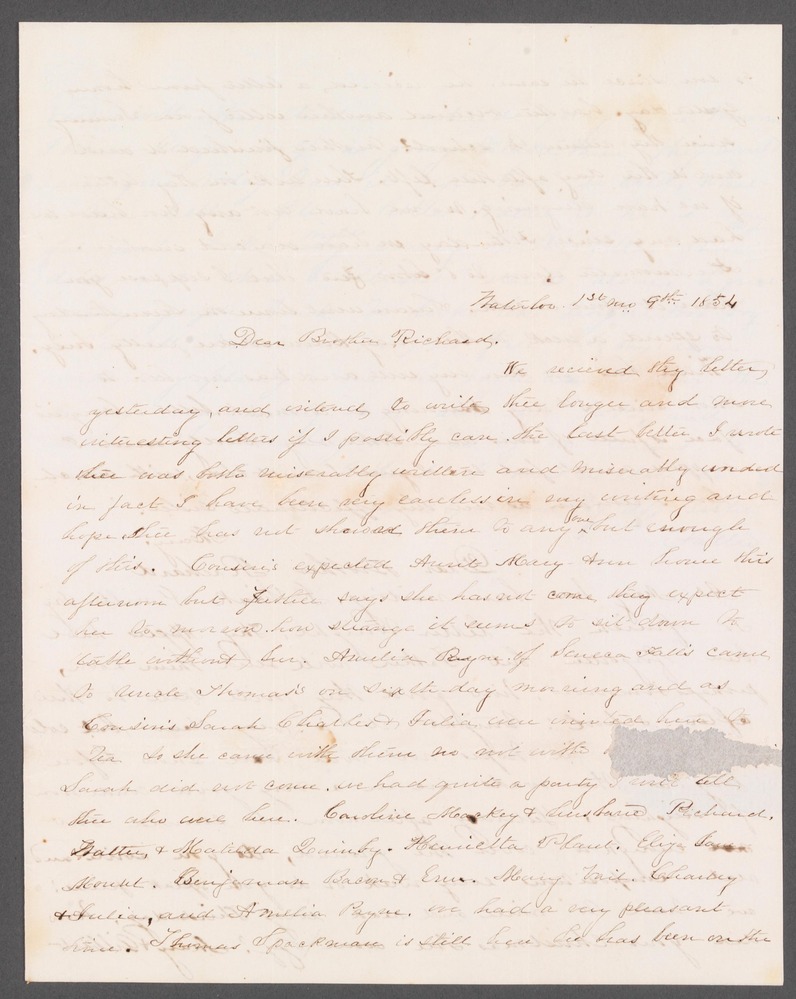 Waterloo 1st mo 9th 1854
Dear Brother Richard.
We recieved thy letter
yesterday, and intend to write thee longer and more
interesting letters if I possibly can, the last letter I wrote
thee was both miserably written and miserably worded
in fact I have been very careless in my writing and
hope thee has not showed them to any one but enough
of this. Cousin's expected Aunt Mary Ann home this
afternoon but Justice says she has not come, they expect
her to morrow. how strange it seems to sit down to
table without her. Amelia Payne of Seneca Falls came
to Uncle Thomas's on sixth-day morning and as
Cousin's Sarah Charles & Julia were invited here to
Tea so she came with them no not with
Sarah did not come. we had quite a party I will tell
thee who were here. Caroline Mackey & husband Richard,
Walter, & Matilda Quinby. Henrietta Plant. Eliza
Mount. Benjaman Bacon & Em. Mary Vail. Charley
& Julia, and Amelia Payne. we had a very pleasant
time. Thomas Spackman is still here he has been on the